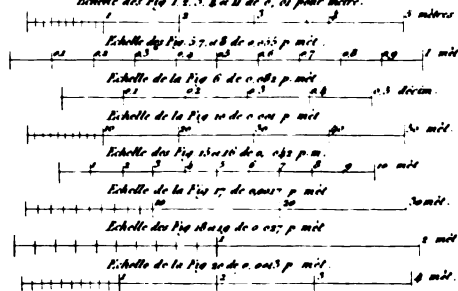 Echelle des Fig 1. 2. 3. 4 a 11 de 0, 01 pour mètre.
1 2 3 4 5 mètres
Echelle des Fig. 5. 7. a 8 de 0.055 p mèt.
0.1 0.2 0.3 0.4 0.5 0.6 0.7 0.8 0.9 1 mèt
Echelle de la Fig 6 de 0.082 p. mèt
0.1 0.2 0.3 0.4 0.5 décim.
Echelle de la Fig 10 de 0.001 p mèt
10 20 30 40 50 mèt
Echelle des Fig 15 a 16 de 0, 042 p. m.
1 2 3 4 5 6 7 8 9 10 mèt
Echelle de la Fig 17 de 0.0027 p mèt
10 20 30 mèt.
Echelle des Fig 18 a 19 de 0.027 p mèt
1 2 mèt
Echelle de la Fig 20 de 0.0013 p mèt.
1 2 3 4 mèt